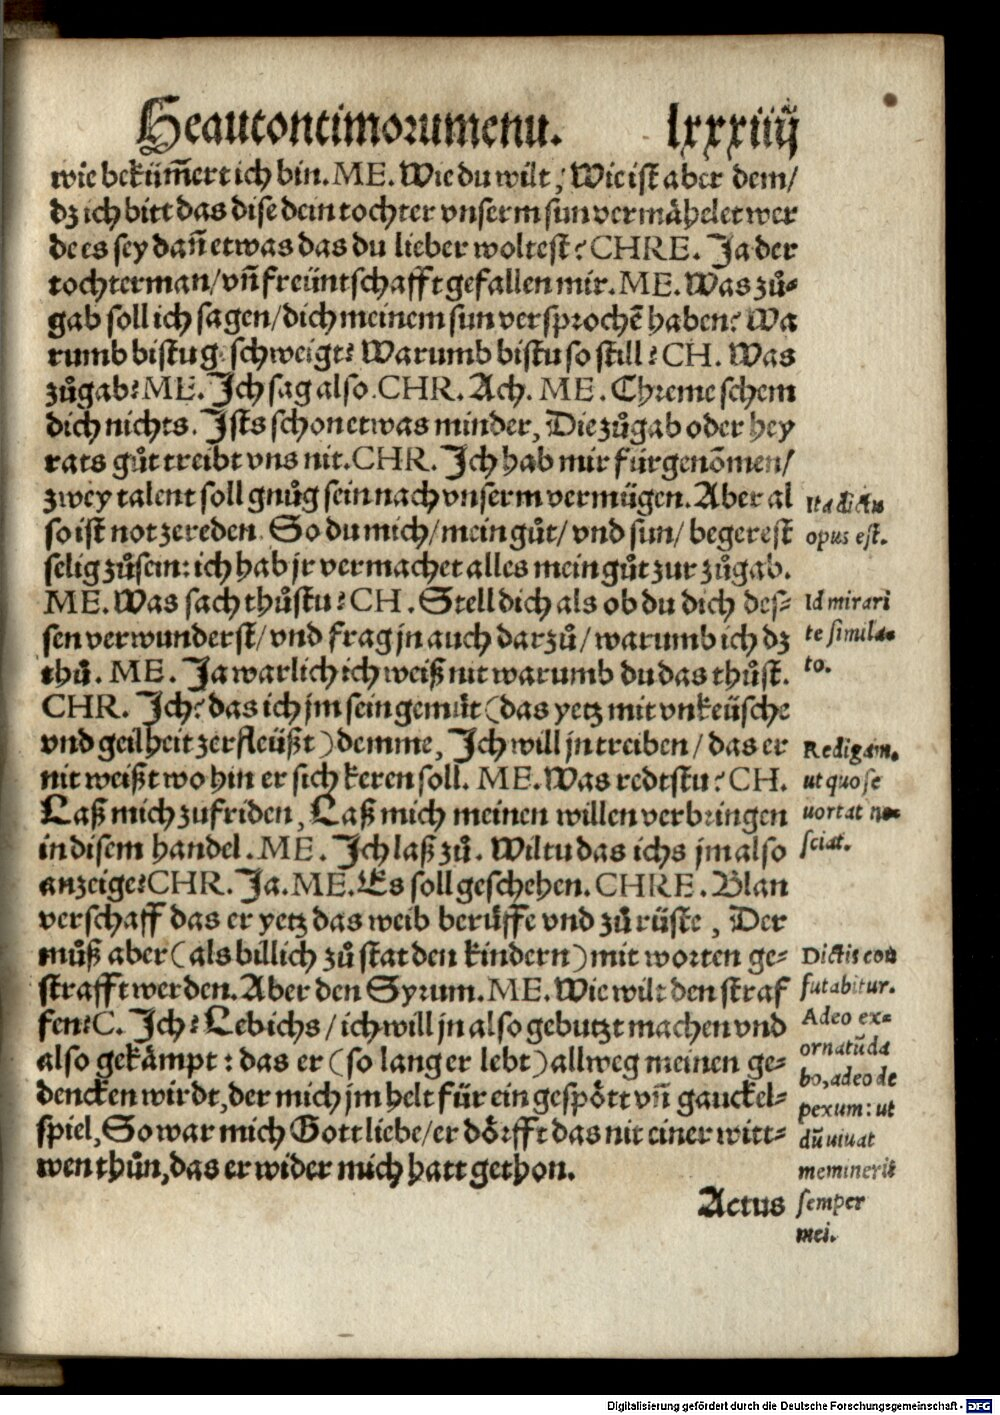 Heautontimorumenu. lxxxiiij
wie bekům̃ert ich bin. ME. Wie du wilt, Wie ist aber dem/
dz ich bitt das dise dein tochter vnserm sun vermåhelet wer
de es sey dañ etwas das du lieber woltest? CHRE. Ja der
tochterman/ vñ freüntschafft gefallen mir. ME. Was zů⸗
gab soll ich sagen/ dich meinem sun versprochẽ haben? Wa
rumb bistu g schweigt? Warumb bistu so still? CH. Was
zůgab? ME. Ich sag also. CHR. Ach. ME. Chreme schem
dich nichts. Ists schon etwas minder, Die zůgab oder hey
rats gůt treibt vns nit. CHR. Ich hab mir fürgenõmen/
zwey talent soll gnůg sein nach vnserm vermügen. Aber al
so ist not zereden. So du mich/ mein gůt/ vnd sun/ begerest
selig zůsein: ich hab jr vermachet alles mein gůt zur zůgab.
ME. Was sach thůstu? CH. Stell dich als ob du dich des⸗
sen verwunderst/ vnd frag jn auch darzů/ warumb ich dz
thů. ME. Ja warlich ich weiß nit warumb du das thůst.
CHR. Ich? das ich jm sein gemüt (das yetz mit vnkeüsche
vnd geilheit zerfleüßt) demme, Ich will jn treiben/ das er
nit weißt wo hin er sich keren soll. ME. Was redtstu? CH.
Laß mich zufriden, Laß mich meinen willen verbringen
in disem handel. ME. Ich laß zů. Wiltu das ichs jm also
anzeige? CHR. Ja. ME. Es soll geschehen. CHRE. Blan
verschaff das er yetz das weib berůffe vnd zů rüste, Der
můß aber (als billich zů stat den kindern) mit worten ge⸗
strafft werden. Aber den Syrum. ME. Wie wilt den straf
fen? C. Ich? Leb ichs/ ich will jn also gebutzt machen vnd
also gekåmpt: das er (so lang er lebt) allweg meinen ge⸗
dencken wirdt, der mich jm helt für ein gespött vñ gauckel⸗
spiel, So war mich Gott liebe/ er dörfft das nit einer witt⸗
wen thůn, das er wider mich hatt gethon.
Actus
Ita dictu
opus est.
Id mirari
te simula⸗
to.
Redigam.
ut quo se
uortat ne⸗
sciat.
Dictis con
futabitur.
Adeo ex⸗
ornatũ da
bo, adeo de
pexum: ut
dũ uiuat
meminerit
semper
mei.
Digitalisierung gefördert durch die Deutsche Forschungsgemeinschaft - DFG